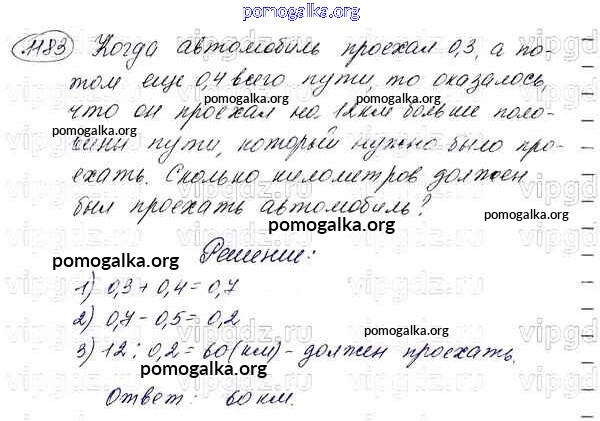 pomogalka.org
1183 Когда автомобиль проехал 0,3, а по-
том еще 0,4 всего пути, то оказалось,
pomogalka.org
что он проехал на 12км больше поло-
pomogalka.org
вины пути, который нужно было про-
ехать. Сколько километров должен
pomogalka.org
был проехать автомобиль?
pomogalka.org
pomogalka.org
Решение:
pomogalka.org
1) 0,3 + 0,4 = 0,7
2) 0,7 - 0,5 = 0,2
pomogalka.org
3) 12 : 0,2 = 60(км) - должен проехать.
pomogalka.org
Ответ: 60 км.